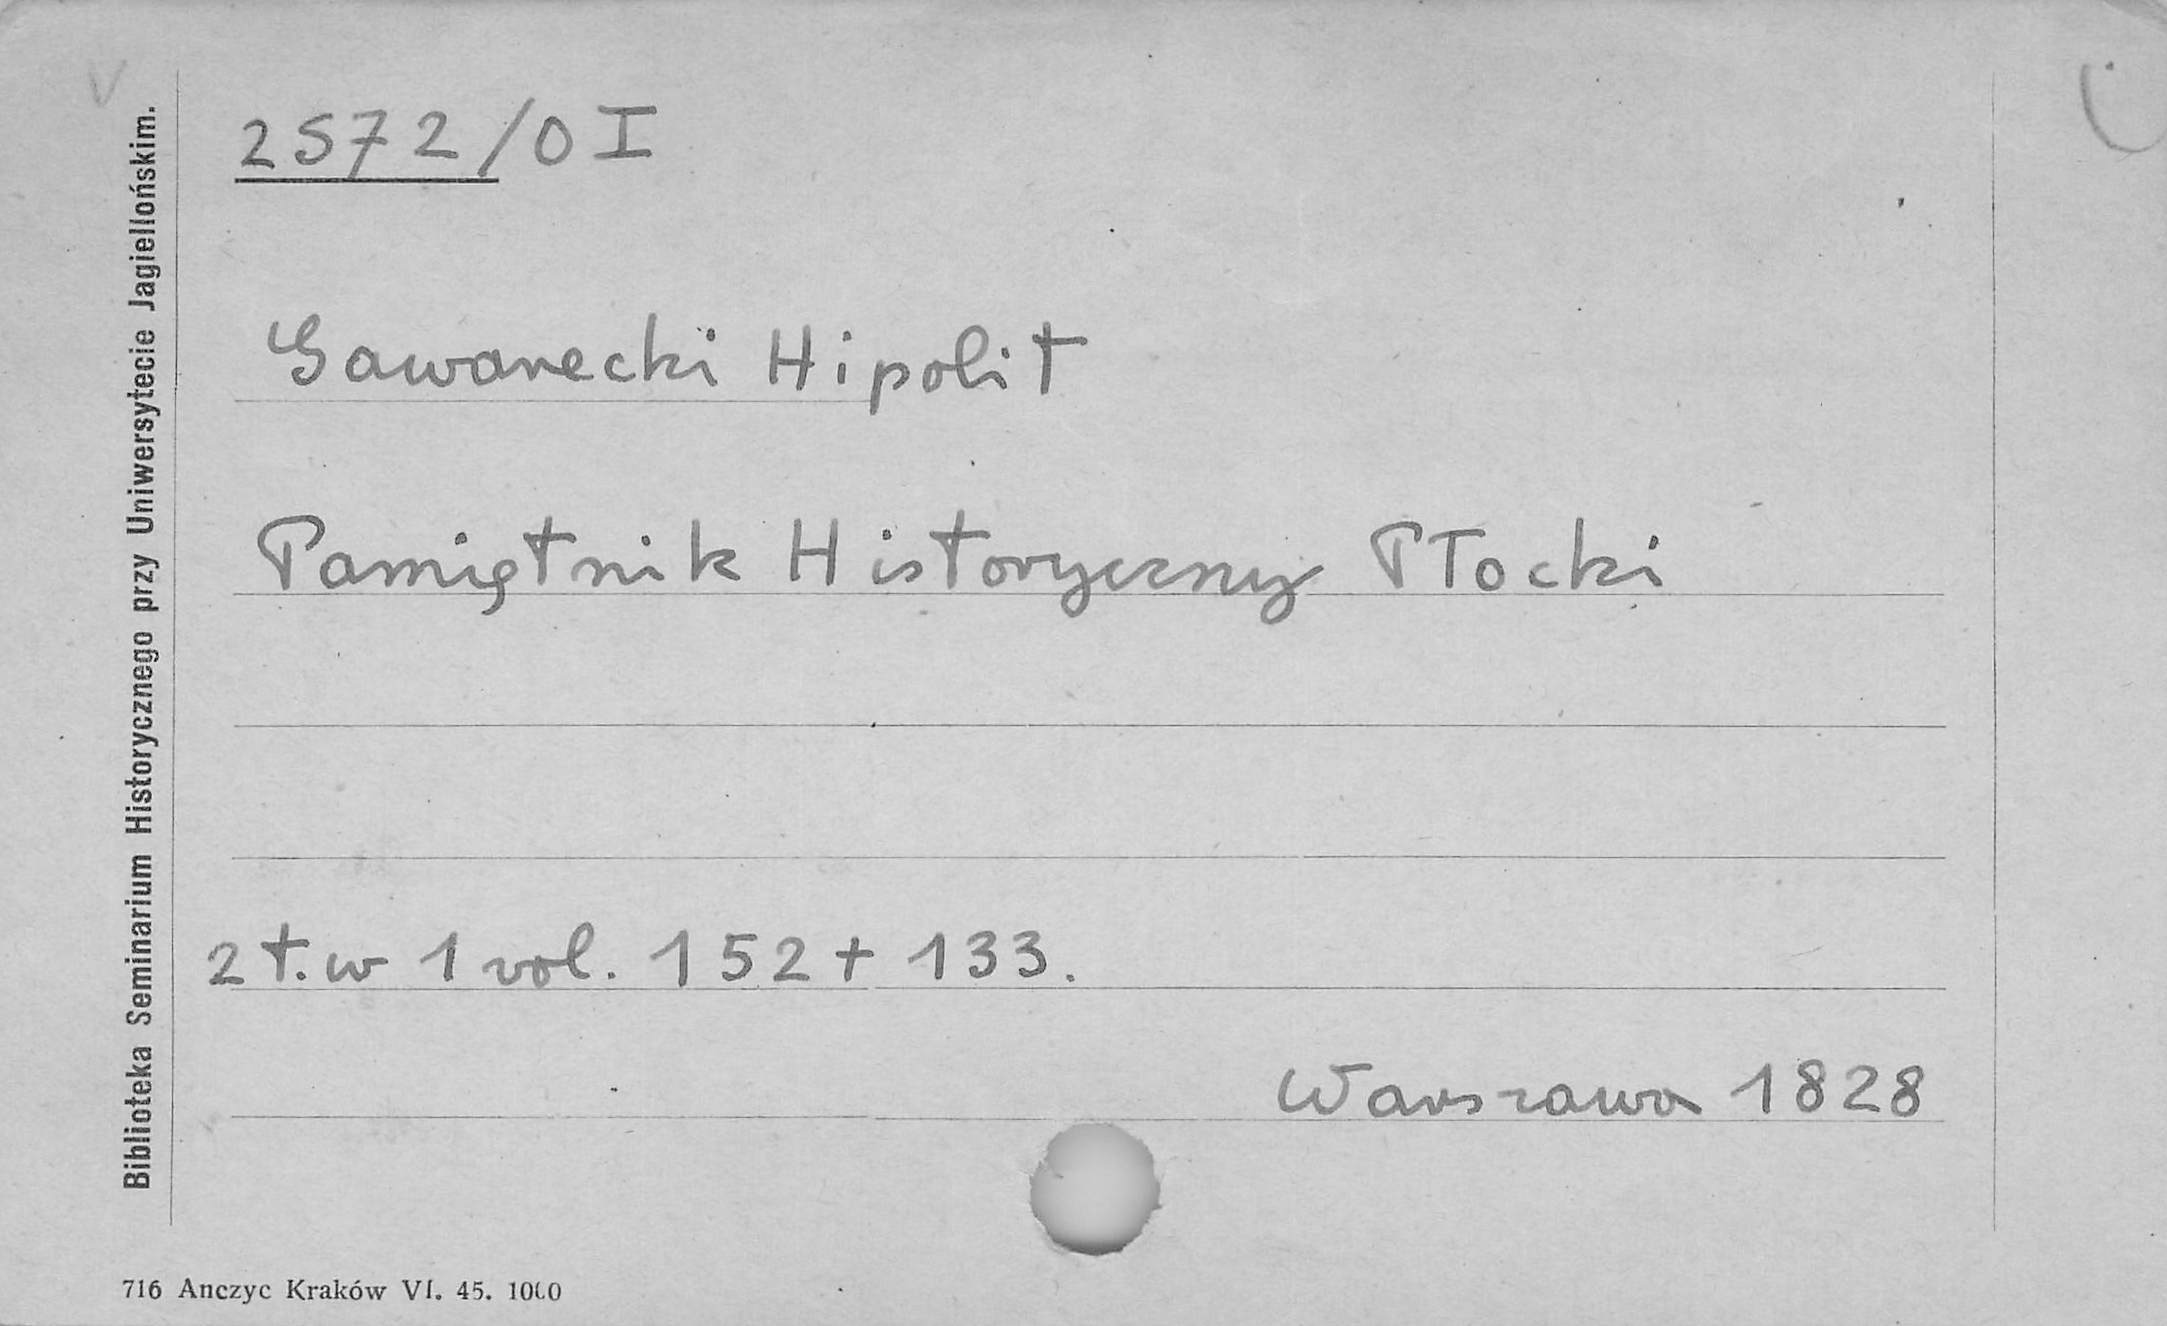 2572/O I
Gawarecki Hipolit
Pamiętnik Historyczny Płocki
2 t. w 1 vol. 152 + 133.
Warszawa 1828
Biblioteka Seminarium Historycznego przy Uniwersytecie Jagiellońskim.
716 Anczyc Kraków VI. 45. 1000